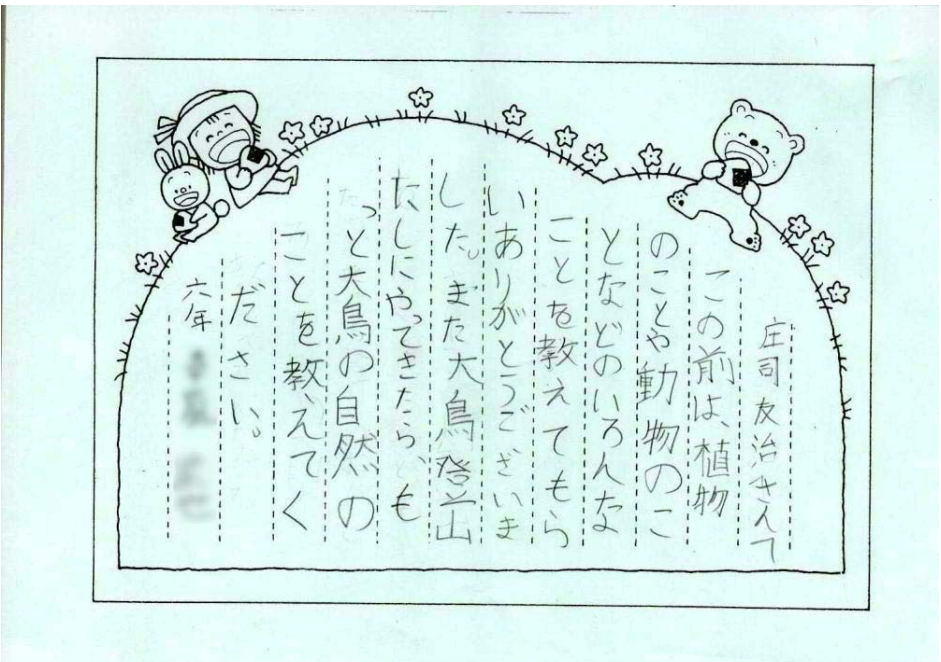 庄司友治さんへ
この前は、植物
のことや動物のこ
となどのいろんな
ことを教えてもら
いありがとうございま
した。また大鳥登山
たしにやってきたら、も
っと大鳥の自然の
ことを教えてく
ださい。
六年